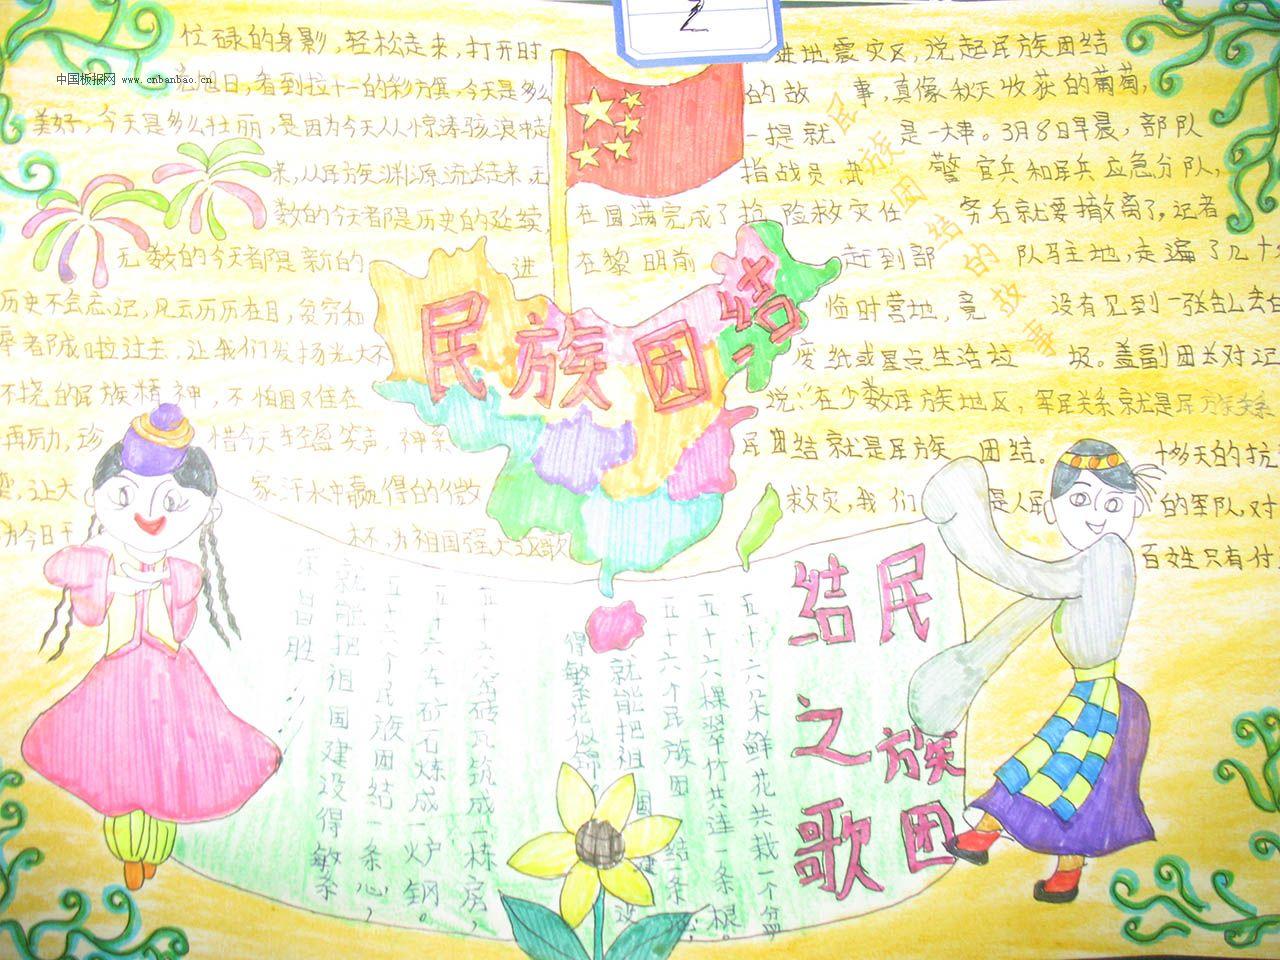 2
中国板报网 www.cnbanbao.cn
民族团结
忙碌的身影，轻松走来，打开时
日，看到拉十一的彩方旗，今天是多么
美好，今天是多么壮丽，是因为今天人人惊涛骇浪中走
来，从民族渊源流走来，无
数的今天都是历史的延续，
无数的今天都是新的
进
历史不会忘记，风云历历在目，贫穷和
辱都成啦过去，让我们发扬光大不
不挠的民族精神，不怕困难在
再励，珍
惜今天轻盈笑声，神
让大
家汗水中赢得的微
为今日干
杯，为祖国强大
民族团结的故事
进地震灾区，说起民族团结
的故事，真像秋天收获的葡萄，
一提就是一大串。3月8日早晨，部队
指战员、武警官兵和民兵应急分队，
在圆满完成了抢险救灾任务后就要撤离了，记者
在黎明前赶到部队驻地，走遍了几十
临时营地，竟没有见到一张乱丢的
废纸或星点生活垃圾。盖副团长对记
说：“在少数民族地区，军民关系就是民族关系
民团结就是民族团结。十多天的抗
救灾，我们是人民的军队，对
百姓只有付
民族团结之歌
五十六朵鲜花共栽一个盆
五十六棵翠竹共连一条根。
五十六个民族团结一条心，
就能把祖国建设
得繁花似锦。
五十六窑砖瓦筑成一栋房，
五十六车矿石炼成一炉钢。
五十六个民族团结一条心，
就能把祖国建设得繁
荣昌胜！！